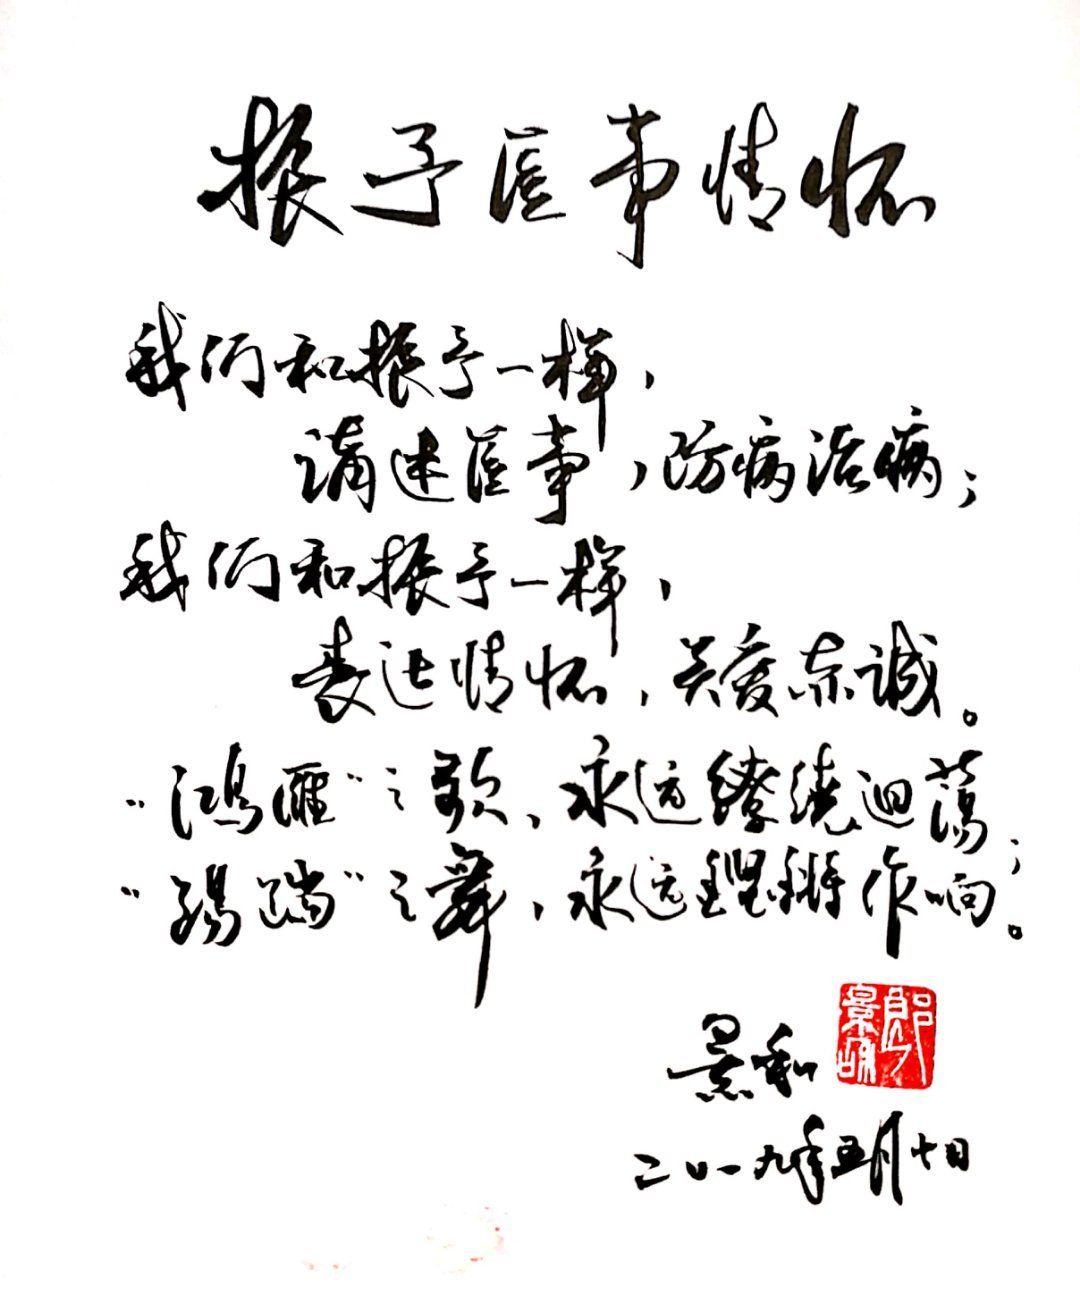 振予医事情怀
我们和振予一样，
讲述医事，防病治病；
我们和振予一样，
表达情怀，关爱赤诚。
“鸿雁”之歌，永远缭绕迴荡；
“踢踏”之舞，永远铿锵作响。
景和
郎景和
二〇一九年五月十日